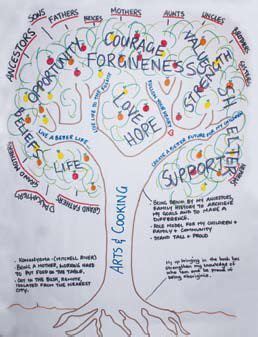 ANCESTORS
SONS
FATHERS
NEICES
MOTHERS
AUNTS
UNCLES
BROTHERS
SISTERS
NEPHEWS
OPPORTUNITY
COURAGE
FORGIVENESS
VALUES
STRENGTH
SHELTER
BELIEFS
LOVE
HOPE
LIVE LIFE TO THE FULLEST
FOLLOW YOUR DREAMS
LIVE A BETTER LIFE
CREATE A BETTER FUTURE FOR MY CHILDREN
LIFE
SUPPORT
GRAND MOTHERS
GRAND FATHERS
DAUGHTERS
ARTS & COOKING
BEING DRIVEN BY MY ANCESTORS,
FAMILY HISTORY TO ACHIEVE
MY GOALS AND TO MAKE A
DIFFERENCE.
ROLE MODEL FOR MY CHILDREN
& FAMILY & COMMUNITY
STAND TALL & PROUD
(MITCHELL RIVER)
BEING A MOTHER, WORKING HARD
TO PUT FOOD ON THE TABLE.
OUT IN THE BUSH, REMOTE,
ISOLATED FROM THE NEAREST
CITY.
My up bringing in the bush has
strengthen my knowledge of
who I am and be proud of
being Aboriginal.